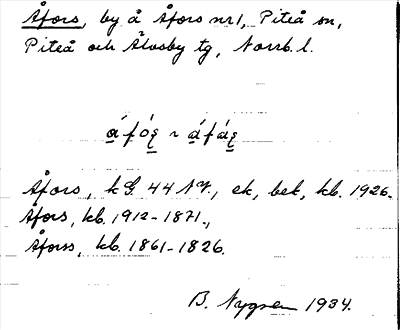 Åfors, by å Åfors nr 1, Piteå sn,
Piteå och Älvsby tg, Norrb. l.
Åfors, kG. 44 NV., ek, bek, kb. 1926.
Åfors, kb. 1912-1871.,
Åforss, kb. 1861-1826.
B. Nygren 1934.